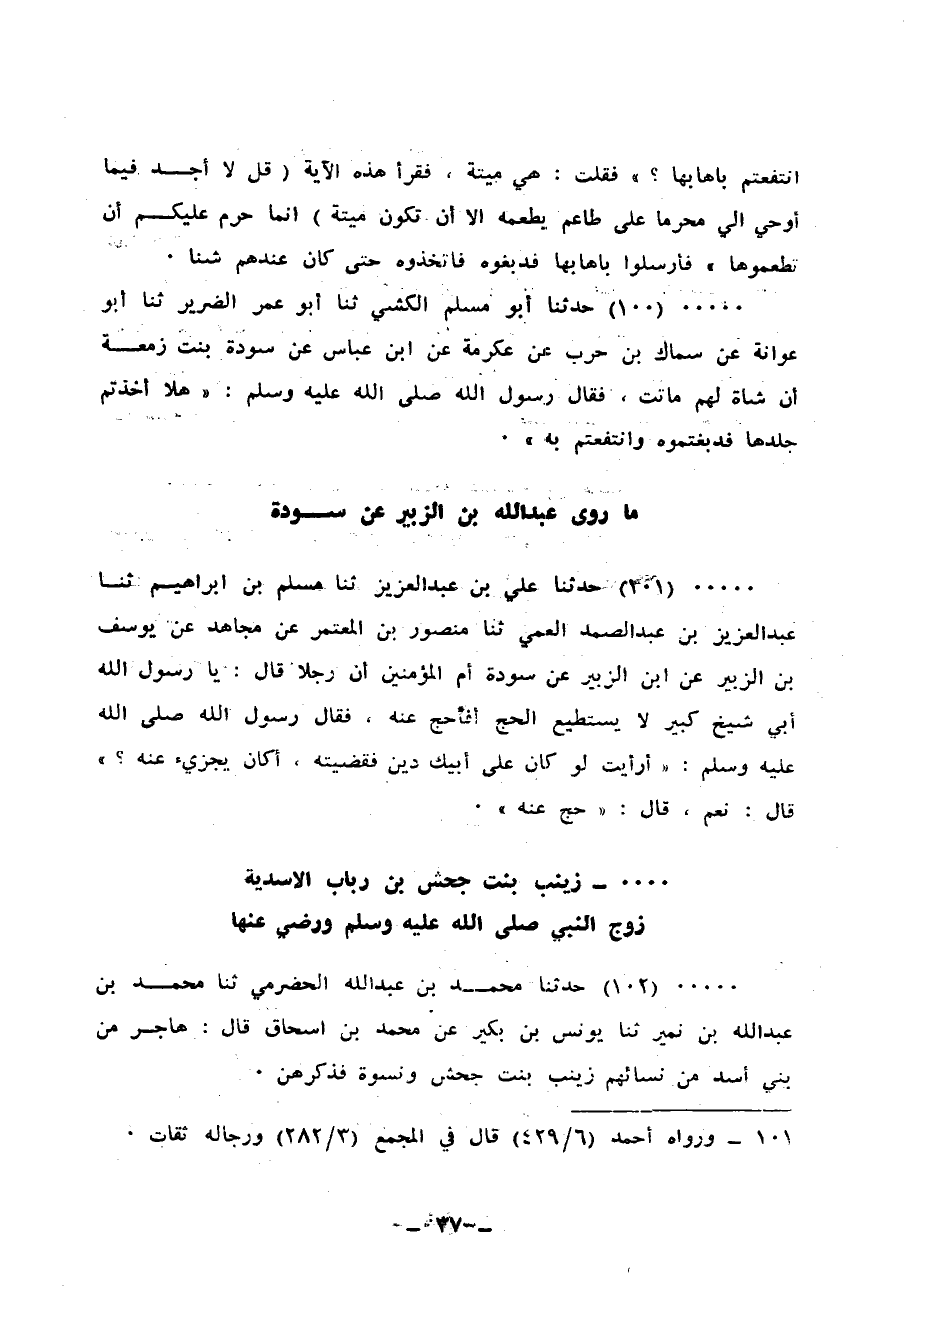 انتفعتم باهابها ؟ » فقلت : هي ميتة ، فقرأ هذه الآية ( قل لا أجـــد فيما
أوحي الي محرما على طاعم يطعمه الا أن تكون ميتة ) انما حرم عليكـــم أن
تطعموها » فأرسلوا باهابها فدبغوه فاتخذوه حتى كان عندهم شنا ٠
٠٠٠٠٠ (١٠٠) حدثنا أبو مسلم الكشي ثنا أبو عمر الضرير ثنا أبو
عوانة عن سماك بن حرب عن عكرمة عن ابن عباس عن سودة بنت زمعـــة
أن شاة لهم ماتت ، فقال رسول الله صلى الله عليه وسلم : « هلا أخذتم
جلدها فدبغتموه وانتفعتم به » ٠
ما روى عبدالله بن الزبير عن ســـودة
٠٠٠٠٠ (١٠١) حدثنا علي بن عبدالعزيز ثنا مسلم بن ابراهيـم ثنـا
عبدالعزيز بن عبدالصمد العمي ثنا منصور بن المعتمر عن مجاهد عن يوسف
بن الزبير عن ابن الزبير عن سودة أم المؤمنين أن رجلا قال : يا رسول الله
أبي شيخ كبير لا يستطيع الحج أفأحج عنه ، فقال رسول الله صلى الله
عليه وسلم : « أرأيت لو كان على أبيك دين فقضيته ، أكان يجزيء عنه ؟ »
قال : نعم ، قال : « حج عنه » ٠
٠٠٠٠ ـ زينب بنت جحش بن رباب الاسدية
زوج النبي صلى الله عليه وسلم ورضي عنها
٠٠٠٠٠ (١٠٢) حدثنا محمـــد بن عبدالله الحضرمي ثنا محمـــد بن
عبدالله بن نمير ثنا يونس بن بكير عن محمد بن اسحاق قال : هاجـر من
بني أسد من نسائهم زينب بنت جحش ونسوة فذكرهن ٠
١٠١ ـ ورواه أحمد (٤٢٩/٦) قال في المجمع (٢٨٢/٣) ورجاله ثقات ٠
ـ ٣٧ ـ